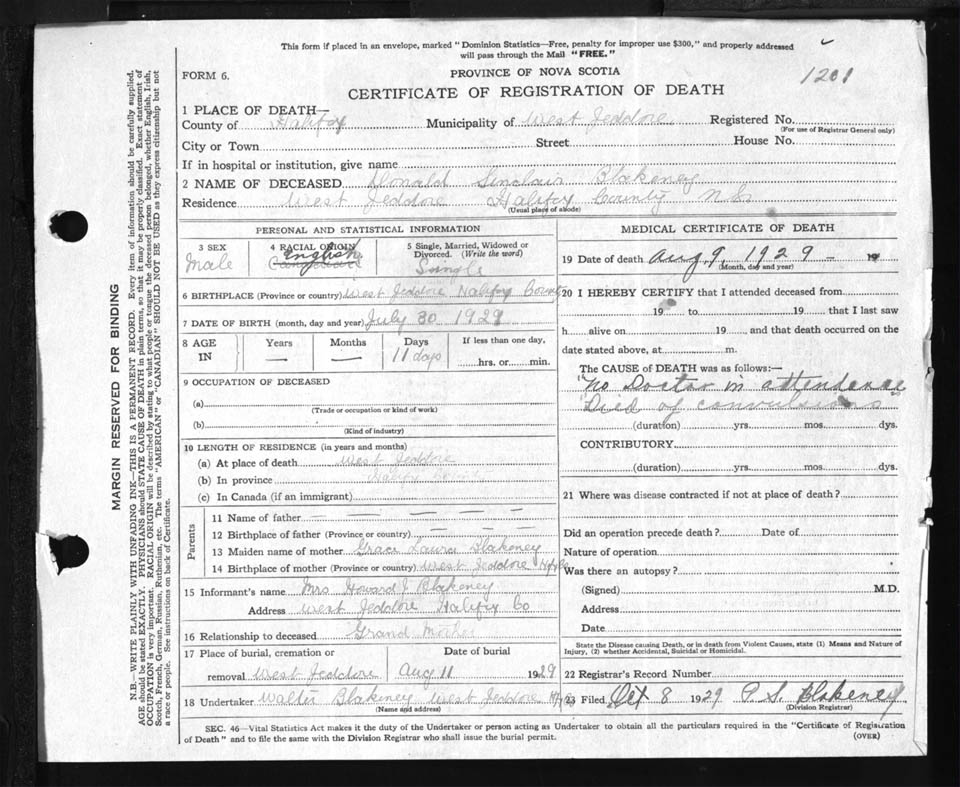 This form if placed in an envelope, marked "Dominion Statistics—Free, penalty for improper use $300," and properly addressed
will pass through the Mail "FREE."
1201
FORM 6.
PROVINCE OF NOVA SCOTIA
CERTIFICATE OF REGISTRATION OF DEATH
1 PLACE OF DEATH—
County of Halifax Municipality of West Jeddore Registered No.
(For use of Registrar General only)
City or Town Street House No.
If in hospital or institution, give name
2 NAME OF DECEASED Donald Sinclair Blakeney
Residence West Jeddore Halifax County N.S.
(Usual place of abode)
MARGIN RESERVED FOR BINDING
N.B.—WRITE PLAINLY WITH UNFADING INK—THIS IS A PERMANENT RECORD. Every item of information should be carefully supplied.
AGE should be stated EXACTLY. PHYSICIANS should STATE CAUSE OF DEATH in plain terms, so that it may be properly classified. Exact statement of
OCCUPATION is very important. RACIAL ORIGIN will be described by stating to what people or tongue the deceased person belonged, whether English, Irish,
Scotch, French, German, Russian, Ruthenian, etc. The terms "AMERICAN" or "CANADIAN" SHOULD NOT BE USED as they express citizenship but not
a race or people. See instructions on back of Certificate.
PERSONAL AND STATISTICAL INFORMATION
3 SEX
Male
4 RACIAL ORIGIN
English
5 Single, Married, Widowed or
Divorced. (Write the word)
Single
6 BIRTHPLACE (Province or country) West Jeddore Halifax County
7 DATE OF BIRTH (month, day and year) July 30 1929
8 AGE IN Years Months Days If less than one day,
— — 11 days hrs. or min.
9 OCCUPATION OF DECEASED
(a)
(Trade or occupation or kind of work)
(b)
(Kind of industry)
10 LENGTH OF RESIDENCE (in years and months)
(a) At place of death West Jeddore
(b) In province Halifax County
(c) In Canada (if an immigrant)
Parents
11 Name of father — — — —
12 Birthplace of father (Province or country) — — — —
13 Maiden name of mother Grace Laura Blakeney
14 Birthplace of mother (Province or country) West Jeddore Hfx Co
15 Informant's name Mrs Howard J Blakeney
Address West Jeddore Halifax Co
16 Relationship to deceased Grand Mother
17 Place of burial, cremation or Date of burial
removal West Jeddore Aug 11 1929
18 Undertaker Walter Blakeney West Jeddore
(Name and address)
MEDICAL CERTIFICATE OF DEATH
19 Date of death Aug 9, 1929 — 19
(Month, day and year)
20 I HEREBY CERTIFY that I attended deceased from
19 to 19 that I last saw
h alive on 19 and that death occurred on the
date stated above, at m.
The CAUSE of DEATH was as follows:—
"No Doctor in attendance"
Died of convulsions
(duration) yrs. mos. dys.
CONTRIBUTORY
(duration) yrs. mos. dys.
21 Where was disease contracted if not at place of death?
Did an operation precede death? Date of
Nature of operation
Was there an autopsy?
(Signed) M.D.
Address
Date
State the Disease causing Death, or in death from Violent Causes, state (1) Means and Nature of
Injury, (2) whether Accidental, Suicidal or Homicidal.
22 Registrar's Record Number
23 Filed Oct 8 1929 P. S. Blakeney
(Division Registrar)
SEC. 46—Vital Statistics Act makes it the duty of the Undertaker or person acting as Undertaker to obtain all the particulars required in the "Certificate of Registration
of Death" and to file the same with the Division Registrar who shall issue the burial permit.
(OVER)